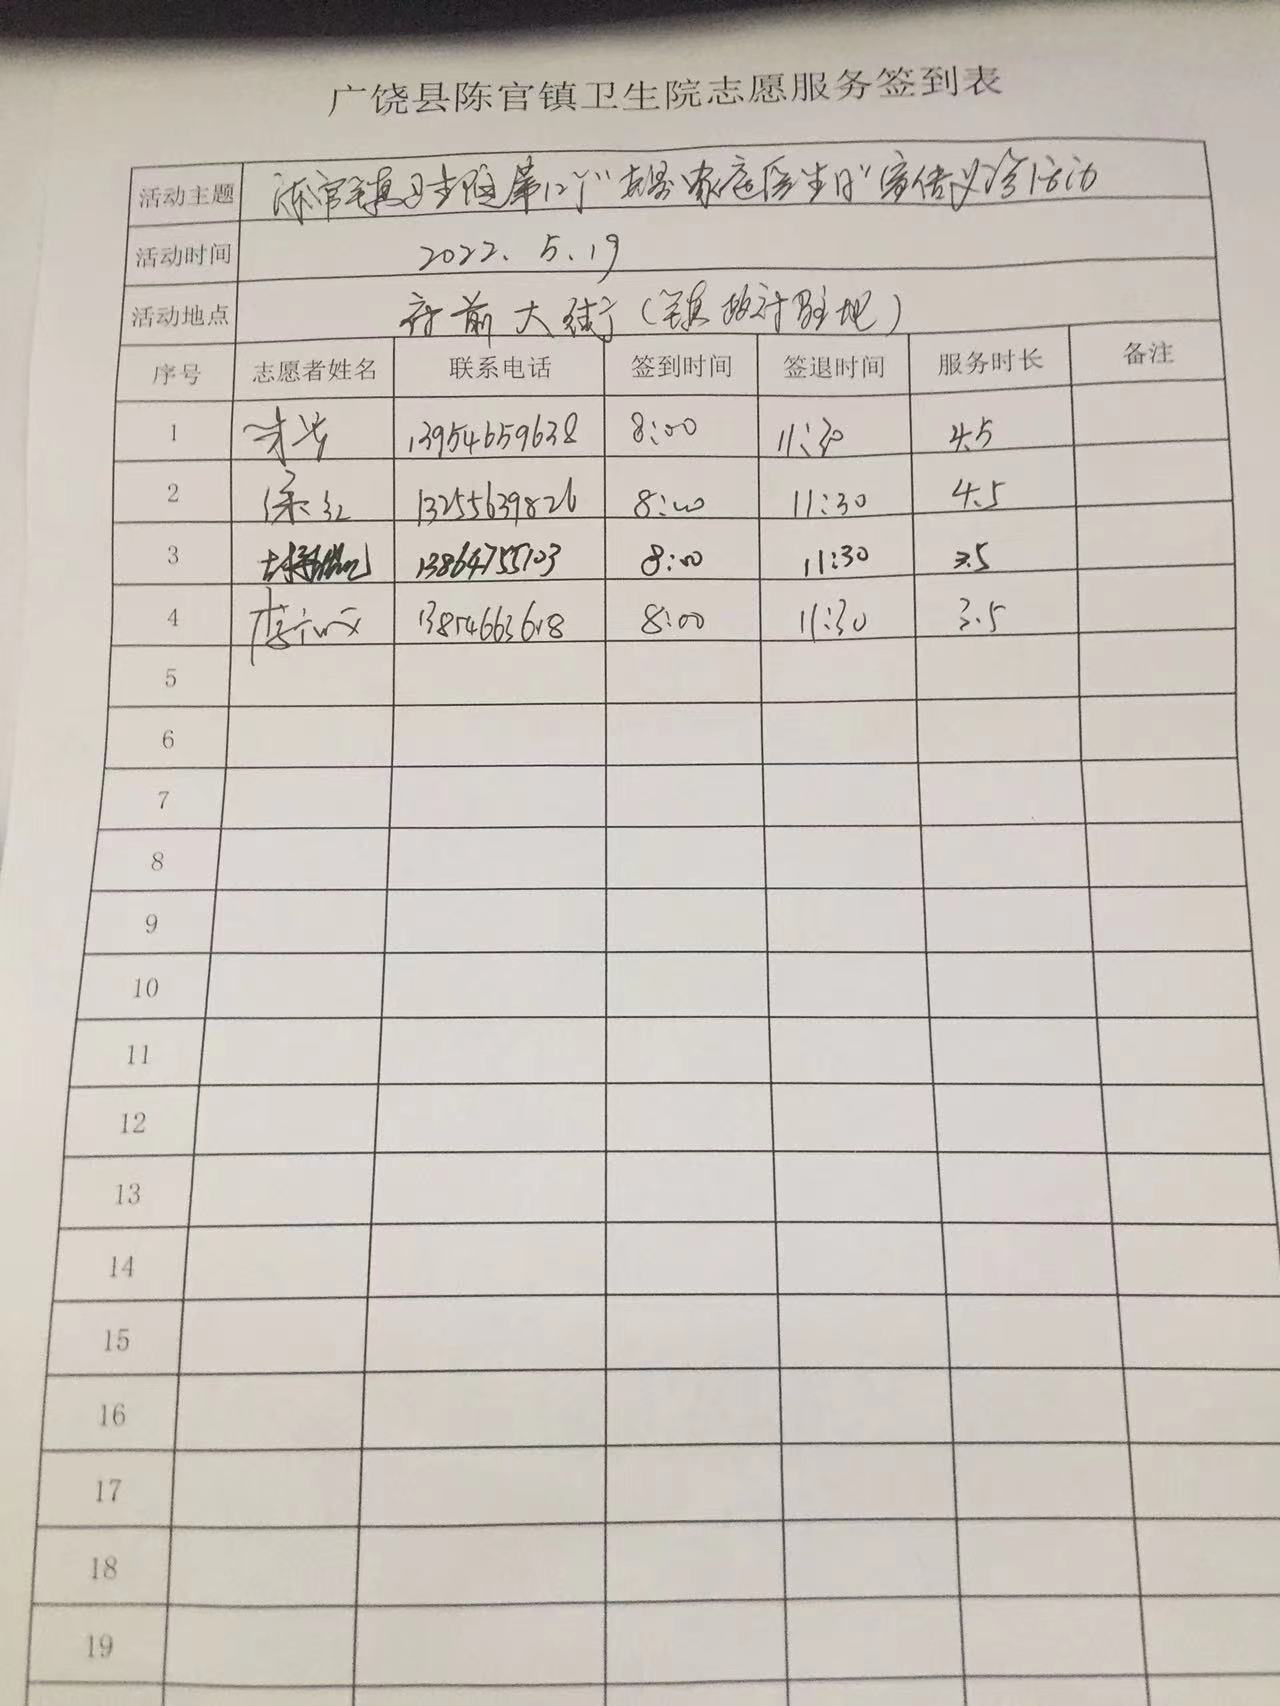 广饶县陈官镇卫生院志愿服务签到表
活动主题 陈官镇卫生院第12个"世界家庭医生日"宣传义诊活动
活动时间 2022.5.19
活动地点 府前大街(镇政府驻地)
序号 志愿者姓名 联系电话 签到时间 签退时间 服务时长 备注
1 13954659638 8:00 11:30 4.5
2 13255639826 8:00 11:30 4.5
3 13864755103 8:00 11:30 3.5
4 8:00 11:30 3.5
5
6
7
8
9
10
11
12
13
14
15
16
17
18
19